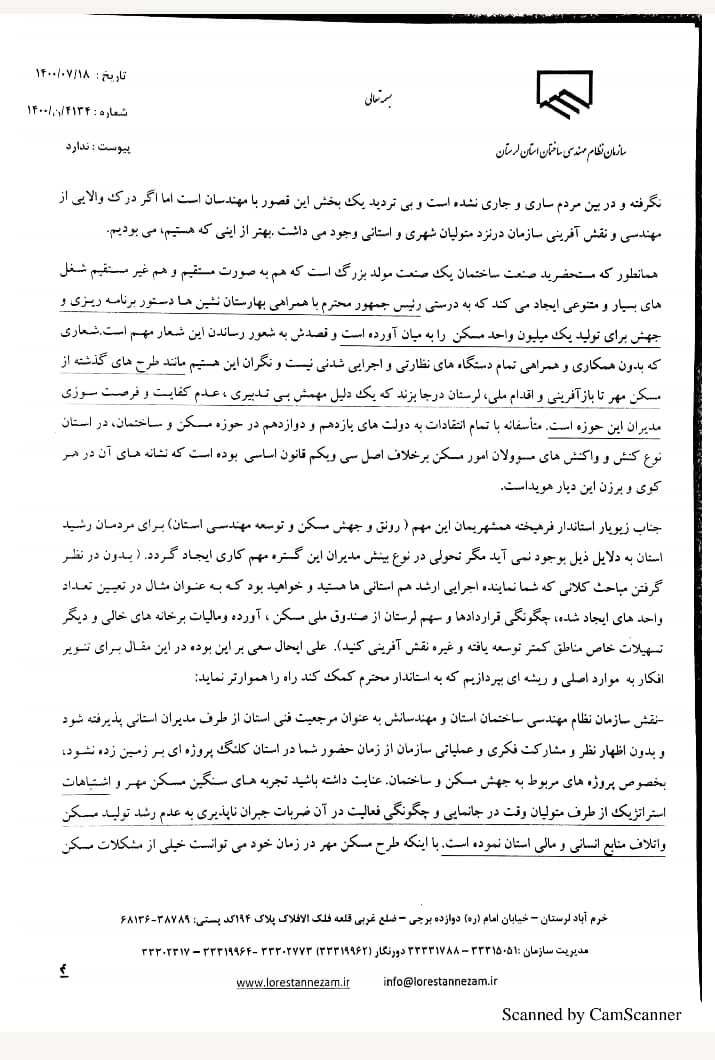 تاریخ : ۱۴۰۰/۰۷/۱۸
بسمه تعالی
شماره : ۴۱۳۴/ن/۱۴۰۰
پیوست : ندارد
سازمان نظام مهندسی ساختمان استان لرستان
نگرفته و در بین مردم ساری و جاری نشده است و بی تردید یک بخش این قصور با مهندسان است اما اگر درک والایی از
مهندسی و نقش آفرینی سازمان درنزد متولیان شهری و استانی وجود می داشت .بهتر از اینی که هستیم، می بودیم.
همانطور که مستحضرید صنعت ساختمان یک صنعت مولد بزرگ است که هم به صورت مستقیم و هم غیر مستقیم شغل
های بسیار و متنوعی ایجاد می کند که به درستی رئیس جمهور محترم با همراهی بهارستان نشین ها دستور برنامه ریزی و
جهش برای تولید یک میلیون واحد مسکن را به میان آورده است و قصدش به شعور رساندن این شعار مهم است.شعاری
که بدون همکاری و همراهی تمام دستگاه های نظارتی و اجرایی شدنی نیست و نگران این هستیم مانند طرح های گذشته از
مسکن مهر تا بازآفرینی و اقدام ملی، لرستان درجا بزند که یک دلیل مهمش بی تدبیری ، عدم کفایت و فرصت سوزی
مدیران این حوزه است. متأسفانه با تمام انتقادات به دولت های یازدهم و دوازدهم در حوزه مسکن و ساختمان، در استان
نوع کنش و واکنش های مسوولان امور مسکن برخلاف اصل سی ویکم قانون اساسی بوده است که نشانه های آن در هر
کوی و برزن این دیار هویداست.
جناب زیویار استاندار فرهیخته همشهریمان این مهم ( رونق و جهش مسکن و توسعه مهندسی استان) برای مردمان رشید
استان به دلایل ذیل بوجود نمی آید مگر تحولی در نوع بینش مدیران این گستره مهم کاری ایجاد گردد. ( بدون در نظر
گرفتن مباحث کلانی که شما نماینده اجرایی ارشد هم استانی ها هستید و خواهید بود که به عنوان مثال در تعیین تعداد
واحد های ایجاد شده، چگونگی قراردادها و سهم لرستان از صندوق ملی مسکن ، آورده ومالیات برخانه های خالی و دیگر
تسهیلات خاص مناطق کمتر توسعه یافته و غیره نقش آفرینی کنید). علی ایحال سعی بر این بوده در این مقال برای تنویر
افکار به موارد اصلی و ریشه ای بپردازیم که به استاندار محترم کمک کند راه را هموارتر نماید:
-نقش سازمان نظام مهندسی ساختمان استان و مهندسانش به عنوان مرجعیت فنی استان از طرف مدیران استانی پذیرفته شود
و بدون اظهار نظر و مشارکت فکری و عملیاتی سازمان از زمان حضور شما در استان کلنگ پروژه ای بر زمین زده نشود،
بخصوص پروژه های مربوط به جهش مسکن و ساختمان. عنایت داشته باشید تجربه های سنگین مسکن مهر و اشتباهات
استراتژیک از طرف متولیان وقت در جانمایی و چگونگی فعالیت در آن ضربات جبران ناپذیری به عدم رشد تولید مسکن
واتلاف منابع انسانی و مالی استان نموده است. با اینکه طرح مسکن مهر در زمان خود می توانست خیلی از مشکلات مسکن
خرم آباد لرستان – خیابان امام (ره) دوازده برجی – ضلع غربی قلعه فلک الافلاک پلاک ۱۹۴کد پستی: ۳۸۷۸۹-۶۸۱۳۶
مدیریت سازمان :۳۳۳۱۵۰۵۱ – ۳۳۳۳۱۷۸۸ دورنگار (۳۳۳۱۹۹۶۲) ۳۳۳۰۲۷۷۳ -۳۳۳۱۹۹۶۴ – ۳۳۳۰۲۳۱۷
۴
www.lorestannezam.ir info@lorestannezam.ir
Scanned by CamScanner